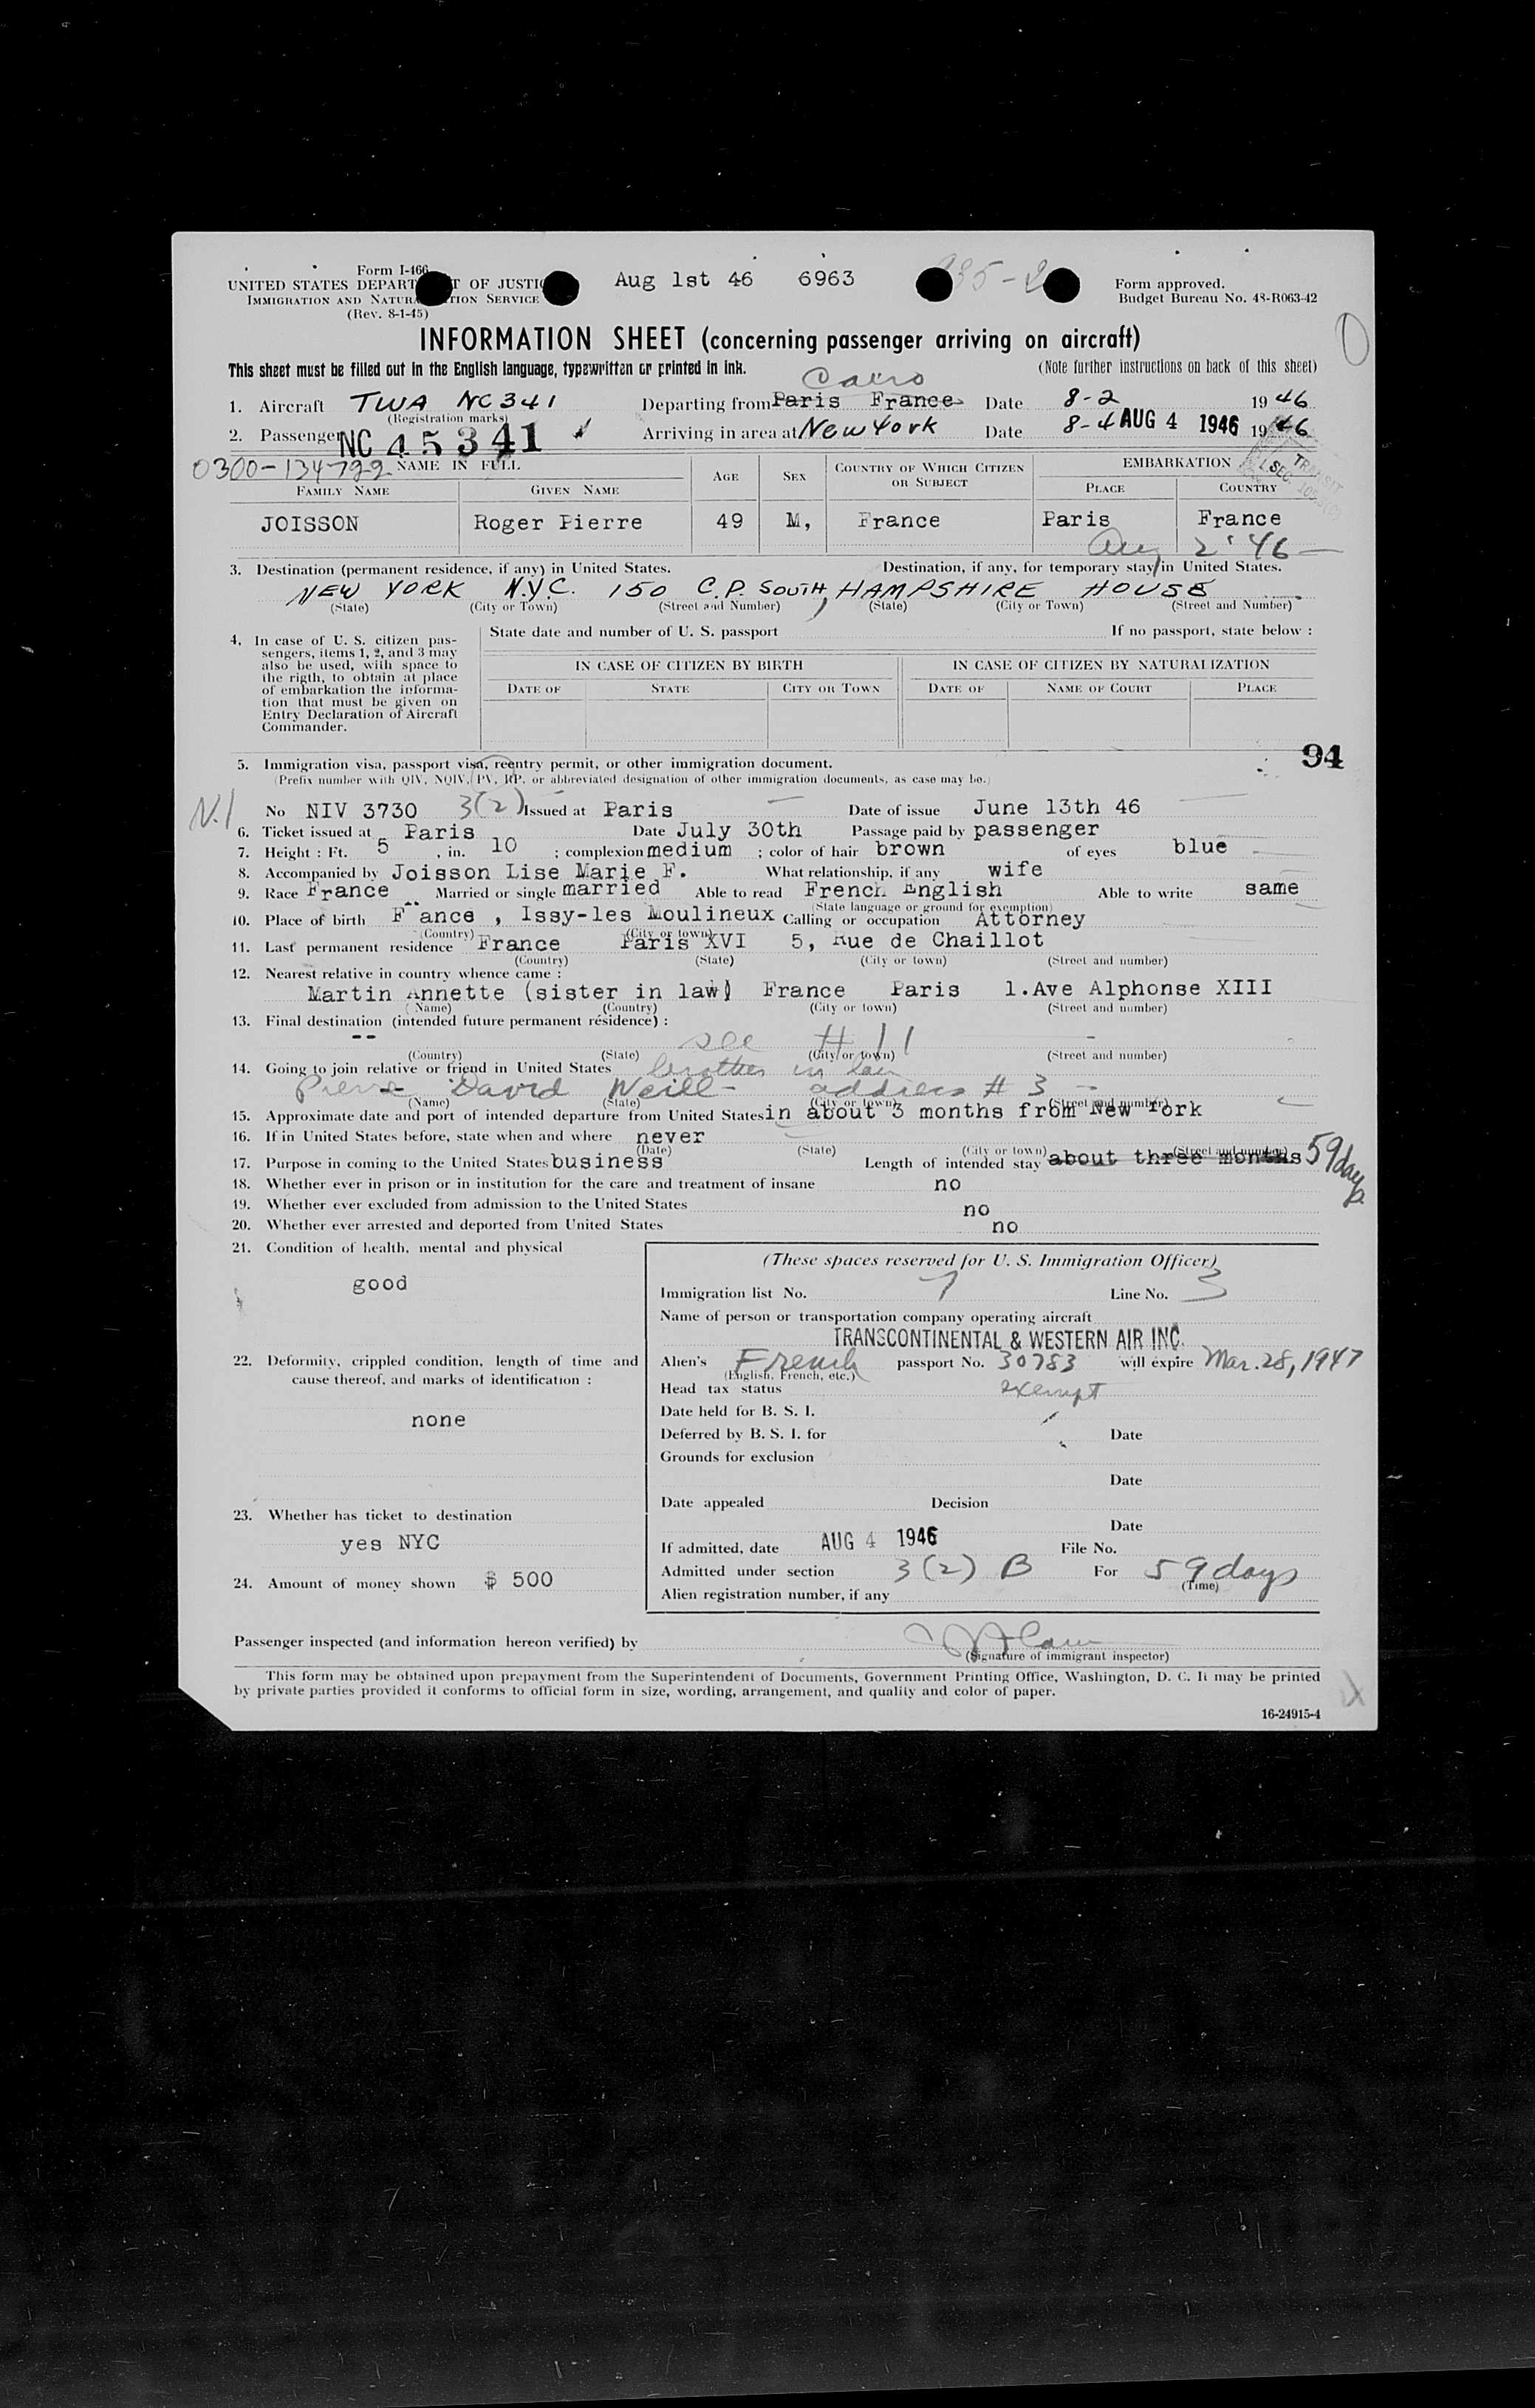 Form I-466
UNITED STATES DEPART T OF JUSTI Aug 1st 46 6963 Form approved.
IMMIGRATION AND NATURA TION SERVICE Budget Bureau No. 43-R063-42
(Rev. 8-1-45)
INFORMATION SHEET (concerning passenger arriving on aircraft)
This sheet must be filled out in the English language, typewritten or printed in ink. (Note further instructions on back of this sheet)
Cairo
1. Aircraft TWA NC341 Departing from Paris France Date 8-2 1946
(Registration marks)
2. Passenger NC 45341 Arriving in area at New York Date 8-4 AUG 4 1946 1946
0300-134722 NAME IN FULL AGE SEX COUNTRY OF WHICH CITIZEN OR SUBJECT EMBARKATION
FAMILY NAME GIVEN NAME PLACE COUNTRY
JOISSON Roger Pierre 49 M, France Paris France
Aug 2' 46
3. Destination (permanent residence, if any) in United States. Destination, if any, for temporary stay in United States.
NEW YORK N.Y.C. 150 C.P. SOUTH, HAMPSHIRE HOUSE
(State) (City or Town) (Street and Number) (State) (City or Town) (Street and Number)
4. In case of U. S. citizen passengers, items 1, 2, and 3 may also be used, with space to the rigth, to obtain at place of embarkation the information that must be given on Entry Declaration of Aircraft Commander.
State date and number of U. S. passport If no passport, state below :
IN CASE OF CITIZEN BY BIRTH IN CASE OF CITIZEN BY NATURALIZATION
DATE OF STATE CITY OR TOWN DATE OF NAME OF COURT PLACE
94
5. Immigration visa, passport visa, reentry permit, or other immigration document.
(Prefix number with QIV, NQIV, PV, RP, or abbreviated designation of other immigration documents, as case may be.)
No NIV 3730 3(2) Issued at Paris Date of issue June 13th 46
6. Ticket issued at Paris Date July 30th Passage paid by passenger
7. Height : Ft. 5 , in. 10 ; complexion medium ; color of hair brown of eyes blue
8. Accompanied by Joisson Lise Marie F. What relationship, if any wife
9. Race France Married or single married Able to read French English Able to write same
(State language or ground for exemption)
10. Place of birth F ance , Issy-les Moulineux Calling or occupation Attorney
(Country) (City or town)
11. Last permanent residence France Paris XVI 5, Rue de Chaillot
(Country) (State) (City or town) (Street and number)
12. Nearest relative in country whence came :
Martin Annette (sister in law) France Paris 1.Ave Alphonse XIII
(Name) (Country) (City or town) (Street and number)
13. Final destination (intended future permanent résidence) :
-- see # 11
(Country) (State) (City or town) (Street and number)
14. Going to join relative or friend in United States brother in law
Pierre David Weill - address # 3 -
(Name) (State) (City or town) (Street and number)
15. Approximate date and port of intended departure from United States in about 3 months from New York
16. If in United States before, state when and where never
(Date) (State) (City or town) (Street and number)
17. Purpose in coming to the United States business Length of intended stay about three months 59 days
18. Whether ever in prison or in institution for the care and treatment of insane no
19. Whether ever excluded from admission to the United States no
20. Whether ever arrested and deported from United States no
21. Condition of health, mental and physical
good
(These spaces reserved for U. S. Immigration Officer)
Immigration list No. 7 Line No. 3
Name of person or transportation company operating aircraft
TRANSCONTINENTAL & WESTERN AIR INC.
22. Deformity, crippled condition, length of time and cause thereof, and marks of identification :
none
Alien's French passport No. 30783 will expire Mar. 28, 1947
(English, French, etc.)
Head tax status exempt
Date held for B. S. I.
Deferred by B. S. I. for Date
Grounds for exclusion
Date
Date appealed Decision
Date
23. Whether has ticket to destination
yes NYC
If admitted, date AUG 4 1946 File No.
Admitted under section 3 (2) B For 59 days
(Time)
24. Amount of money shown $ 500
Alien registration number, if any
Passenger inspected (and information hereon verified) by
(Signature of immigrant inspector)
This form may be obtained upon prepayment from the Superintendent of Documents, Government Printing Office, Washington, D. C. It may be printed
by private parties provided it conforms to official form in size, wording, arrangement, and quality and color of paper.
16-24915-4